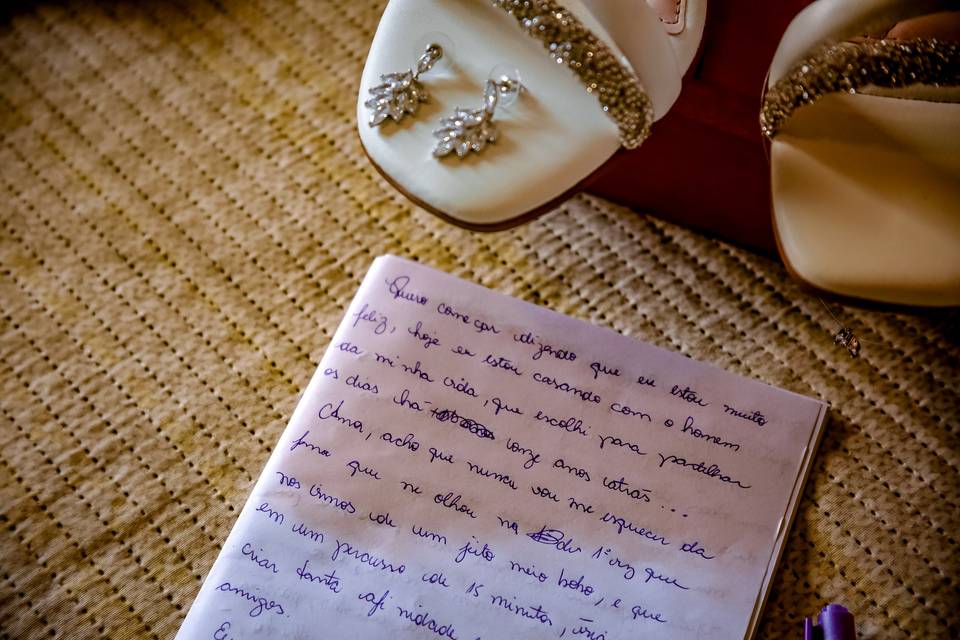 Quero começar dizendo que eu estou muito
feliz, hoje eu estou casando com o homem
da minha vida, que escolhi para partilhar
os dias há onze anos atrás...
Cdma, acho que nunca vou me esquecer da
forma que me olhou na 1ª vez que
nos vimos de um jeito meio bobo, e que
em um percurso de 15 minutos, iria
criar tanta afinidade
amigos.